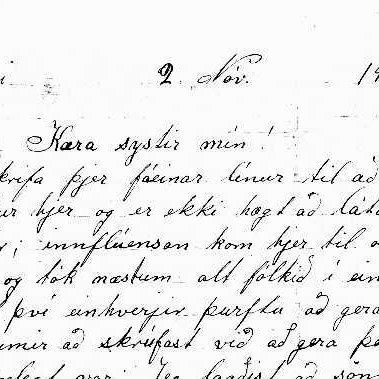 i 2 Nóv. 19
Kæra systir mín!
krifa þjer fáeinar línur til að
ur hjer og er ekki hægt að láta
r; innflúensan kom hjer til a
og tók næstum alt fólkið í ein
því einhverjir þurftu að gera
umir að skrúfast við að gera þa
legt var. Jeg lagðist að sön